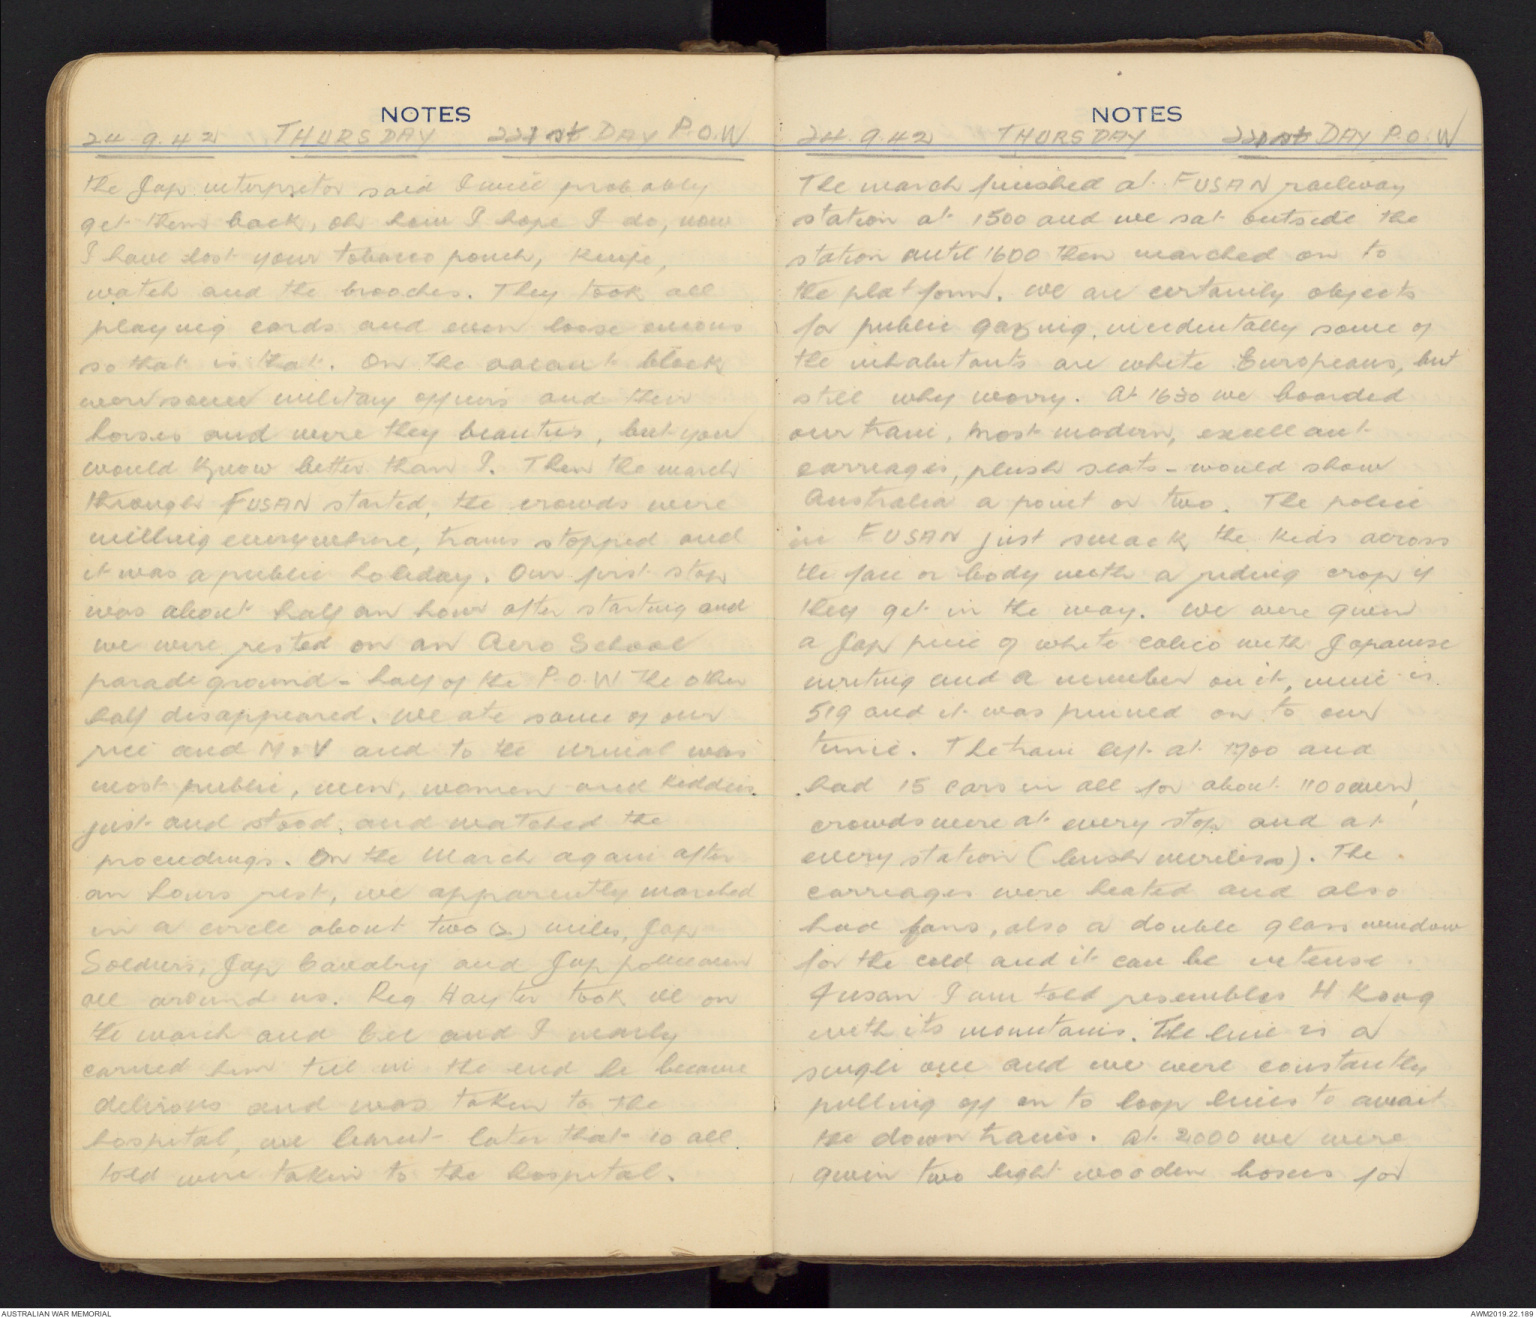 NOTES
24.9.42 THURSDAY 221st DAY P.O.W
the Jap interpretor said I will probably
get them back, oh how I hope I do, now
I have lost your tobacco pouch, knife,
watch and the brooches. They took all
playing cards and even loose
so that is that. On the vacant block
were some military officers and their
horses and were they beauties, but you
would know better than I. Then the march
through FUSAN started, the crowds were
milling everywhere, trams stopped and
it was a public holiday. Our first stop
was about half an hour after starting and
we were rested on an Aero School
parade ground - half of the P.O.W the other
half disappeared. We ate some of our
rice and M & V and to the urinal was
most public, men, women and kiddies
just and stood, and watched the
proceedings. On the March again after
an hours rest, we apparently marched
in a circle about two (2) miles, Jap
Soldiers, Jap Cavalry and Jap policemen
all around us. Reg Hayter took ill on
the march and and I nearly
carried him till in the end he became
delirous and was taken to the
hospital, we learnt later that 10 all
told were taken to the hospital.
NOTES
24.9.42 THURSDAY 221st DAY P.O.W
The march finished at FUSAN railway
station at 1500 and we sat outside the
station until 1600 then marched on to
the platform. We are certainly objects
for public gazing, incidentally some of
the inhabitants are white Europeans, but
still why worry. At 1630 we boarded
our train, most modern, excellant
carriages, plush seats - would show
Australia a point or two. The police
in FUSAN just smack the kids across
the face or body with a riding crop if
they get in the way. We were given
a Jap piece of white calico with Japanese
writing and a number on it, mine is
519 and it was pinned on to our
tunic. The train left at 1700 and
had 15 cars in all for about 1100 men,
crowds were at every stop and at
every station (bush wireless). The
carriages were heated and also
had fans, also a double glass window
for the cold and it can be intense
Fusan I am told resembles H Kong
with its mountains. The line is a
single one and we were constantly
pulling off on to loop lines to await
the down trains. At 2000 we were
given two light wooden boxes for
AUSTRALIAN WAR MEMORIAL
AWM2019.22.189